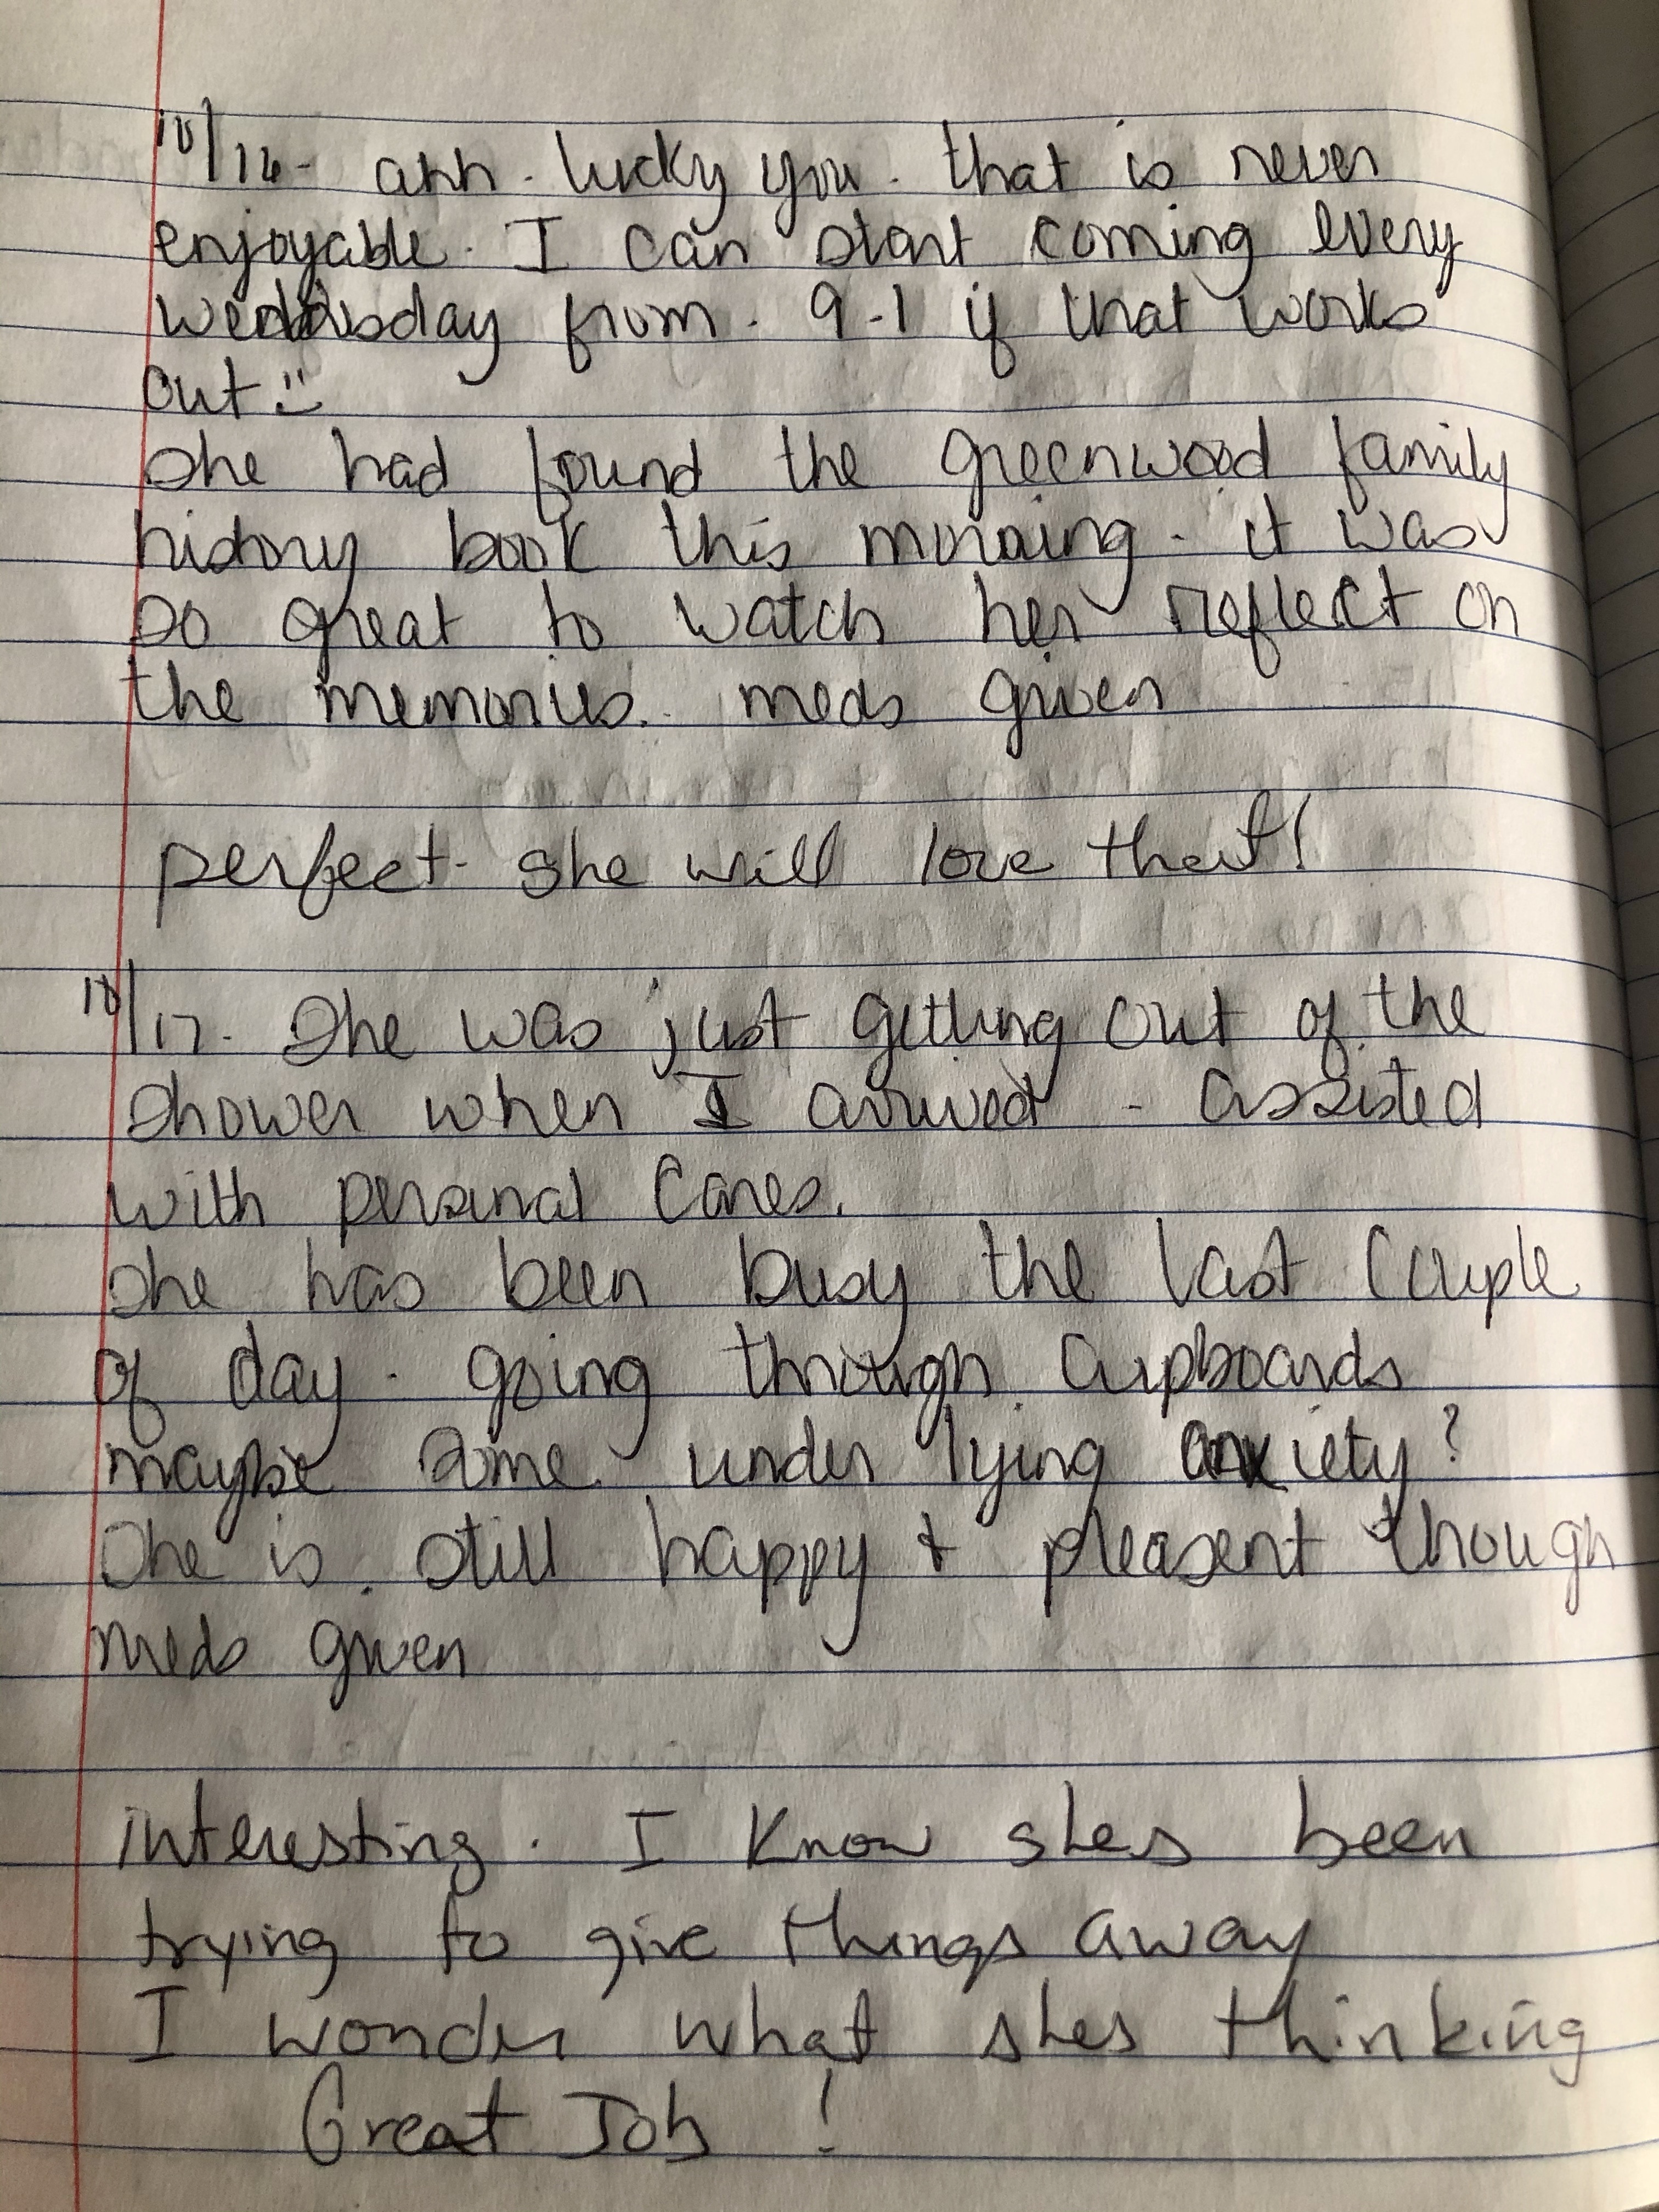 10/16- ahh. lucky you. that is never
enjoyable. I can start coming every
wednisday from. 9-1 if that works
out :)
She had found the greenwood family
history book this morning. it was
so great to watch her reflect on
the memories. meds given
perfect- she will love that!
10/17. She was just getting out of the
shower when I arrived - assisted
with personal cares.
she has been busy the last couple
of day. going through cupboards
maybe some under lying anxiety?
She is. still happy & pleasent though
meds given
interesting. I know shes been
trying to give things away
I wonder what shes thinking
Great Job!